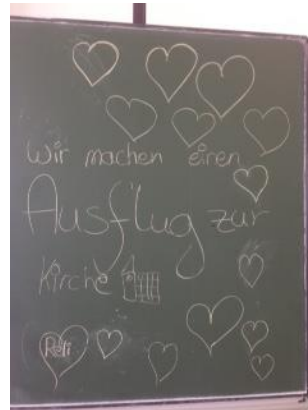 Wir machen einen
Ausflug zur
Kirche
Reli